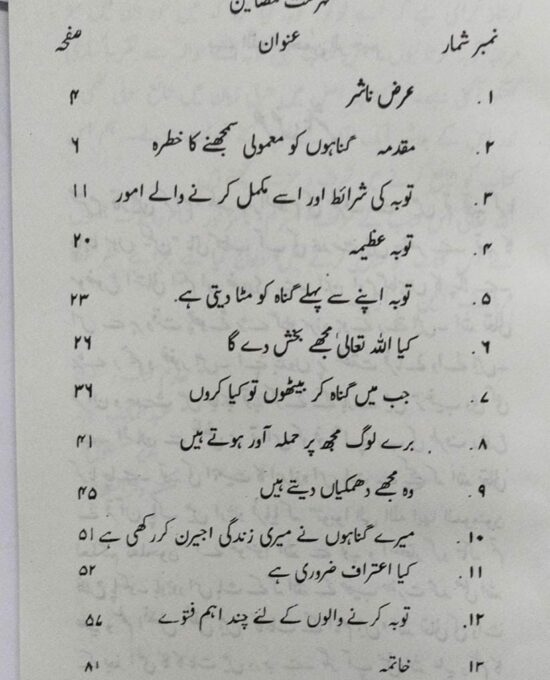 فہرست مضامین
نمبر شمار عنوان صفحہ
۱. عرض ناشر ۴
۲. مقدمہ گناہوں کو معمولی سمجھنے کا خطرہ ۶
۳. توبہ کی شرائط اور اسے مکمل کرنے والے امور ۱۱
۴. توبہ عظیمہ ۲۰
۵. توبہ اپنے سے پہلے گناہ کو مٹا دیتی ہے. ۲۳
۶. کیا اللہ تعالیٰ مجھے بخش دے گا ۲۶
۷. جب میں گناہ کر بیٹھوں تو کیا کروں ۳۶
۸. برے لوگ مجھ پر حملہ آور ہوتے ہیں ۴۱
۹. وہ مجھے دھمکیاں دیتے ہیں ۴۵
۱۰. میرے گناہوں نے میری زندگی اجیرن کر رکھی ہے ۵۱
۱۱. کیا اعتراف ضروری ہے ۵۲
۱۲. توبہ کرنے والوں کے لئے چند اہم فتوے ۵۷
۱۳. خاتمہ ۸۱